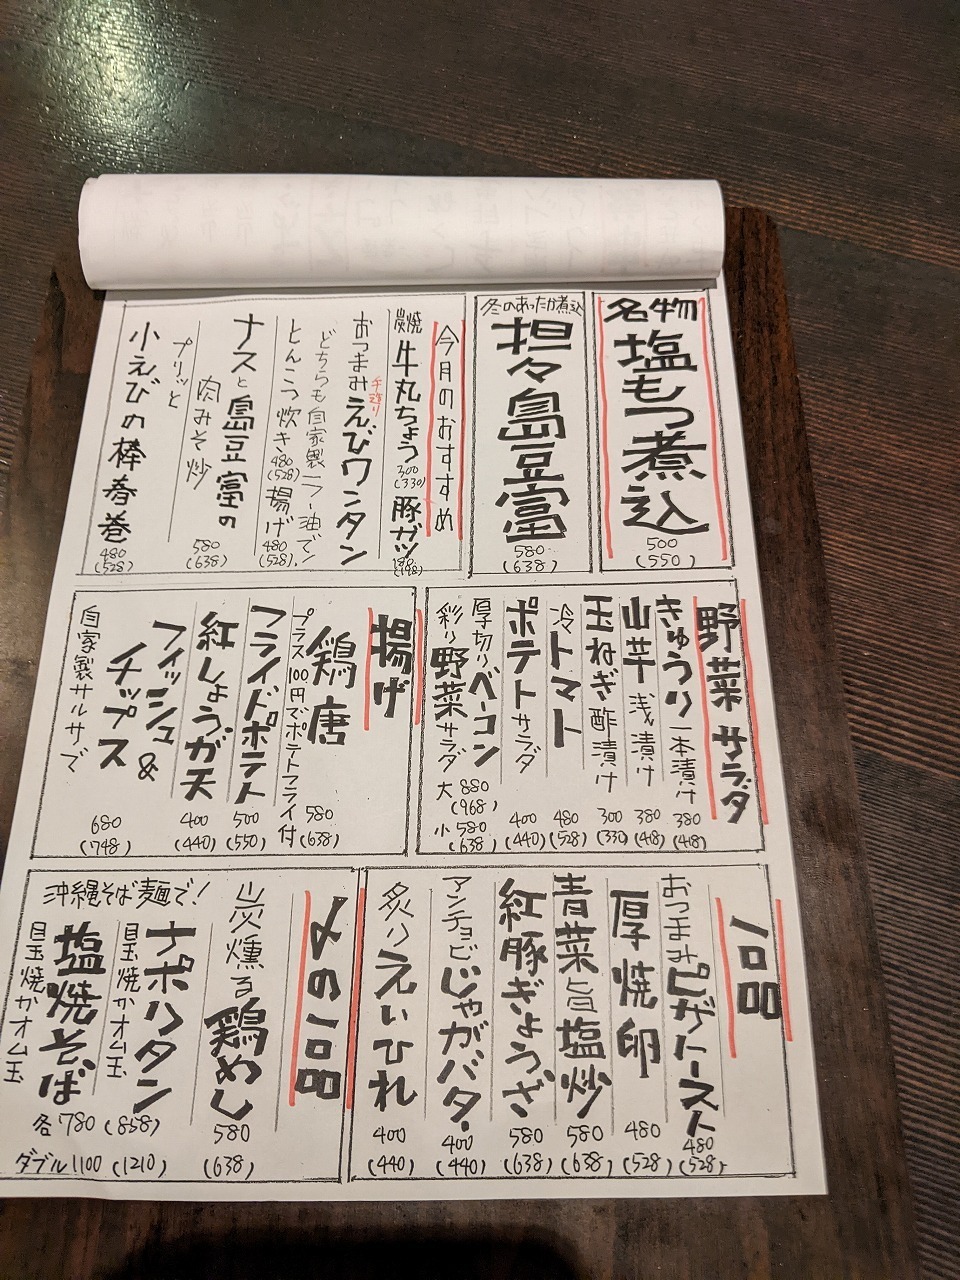 名物
塩もつ煮込
500
(550)
冬のあったか煮込
担々島豆富
580
(638)
今月のおすすめ
炭焼 牛丸ちょう 300 (330) 豚ガツ 180 (198)
おつまみ 手造り えびワンタン
どちらも自家製ラー油で!
とんこつ炊き 480 (528) 揚げ 480 (528)
ナスと島豆富の
肉みそ炒 580 (638)
プリッと
小えびの棒春巻 480 (528)
野菜 サラダ
きゅうり一本漬け 380 (418)
山芋浅漬け 380 (418)
玉ねぎ酢漬け 300 (330)
冷トマト 480 (528)
ポテトサラダ 400 (440)
厚切りベーコン
彩り野菜サラダ
大 880 (968)
小 580 (638)
揚げ
鶏唐 580 (638)
プラス100円でポテトフライ付
フライドポテト 500 (550)
紅しょうが天 400 (440)
フィッシュ&
チップス
自家製サルサで
680 (748)
一品
おつまみピザトースト 480 (528)
厚焼卵 480 (528)
青菜旨塩炒 580 (638)
紅豚ぎょうざ 580 (638)
アンチョビじゃがバター 400 (440)
炙りえいひれ 400 (440)
〆の一品
炭燻る鶏めし 580 (638)
沖縄そば麺で!
ナポリタン
目玉焼かオム玉
塩焼そば
目玉焼かオム玉
各780 (858)
ダブル1100 (1210)